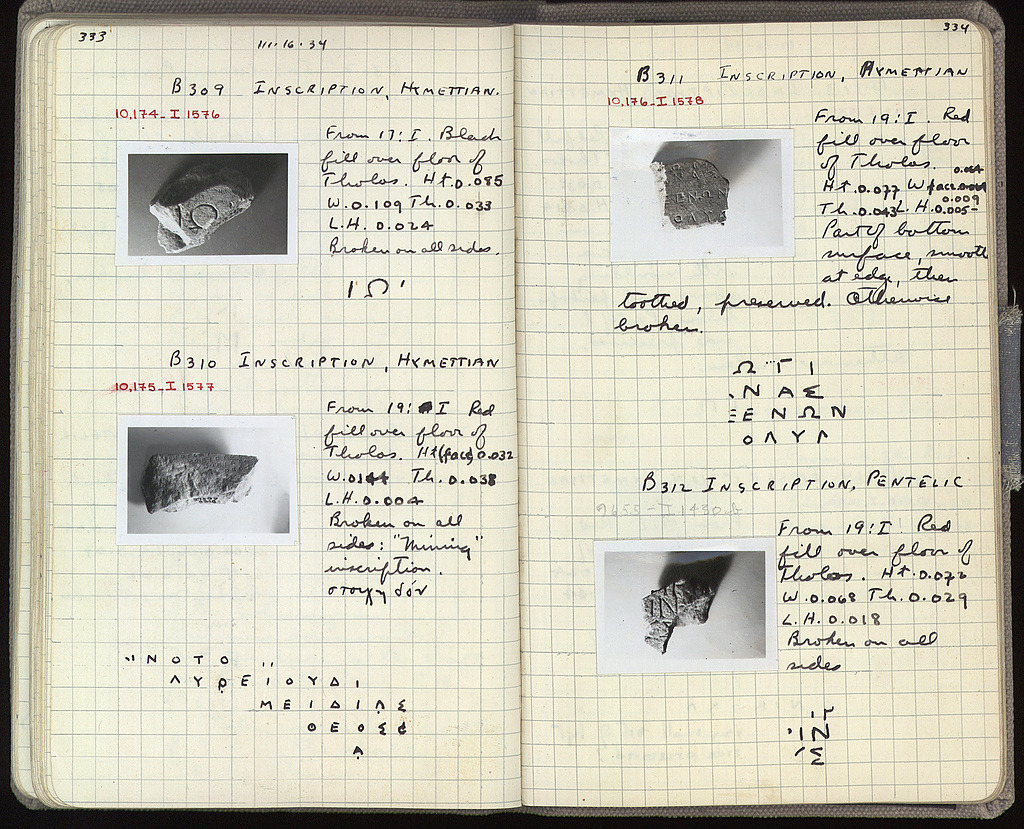 333
111·16·34
B309 INSCRIPTION, HYMETTIAN.
10,174-I 1576
From 17:I. Black
fill over floor of
Tholos. Ht. 0.085
W. 0.109 Th. 0.033
L.H. 0.024
Broken on all sides.
Ι Ω Ι
B310 INSCRIPTION, HYMETTIAN
10,175-I 1577
From 19: I Red
fill over floor of
Tholos. Ht (face) 0.032
Th. 0.038
L.H. 0.004
Broken on all
sides: "Mining"
inscription.
στοιχηδόν
Ν Ο Τ Ο
Λ Υ Ρ Ε Ι Ο Υ Δ Ι
Μ Ε Ι Δ Ι Λ Σ
Θ Ε Ο Σ
Α
334
B311 INSCRIPTION, HYMETTIAN
10,176-I 1578
From 19:I. Red
fill over floor
of Tholos.
0.064
Ht. 0.077 W face
0.009
Th. 0.043 L.H. 0.005-
Part of bottom
surface, smooth
at edge, then
toothed, preserved. Otherwise
broken.
Ω Γ Ι
Ν Α Σ
Ξ Ε Ν Ω Ν
Ο Λ Υ Λ
B312 INSCRIPTION, PENTELIC
9655-I 1430 b
From 19:I Red
fill over floor of
Tholos. Ht. 0.072
W. 0.068 Th. 0.029
L.H. 0.018
Broken on all
sides
Ι Ν
Σ